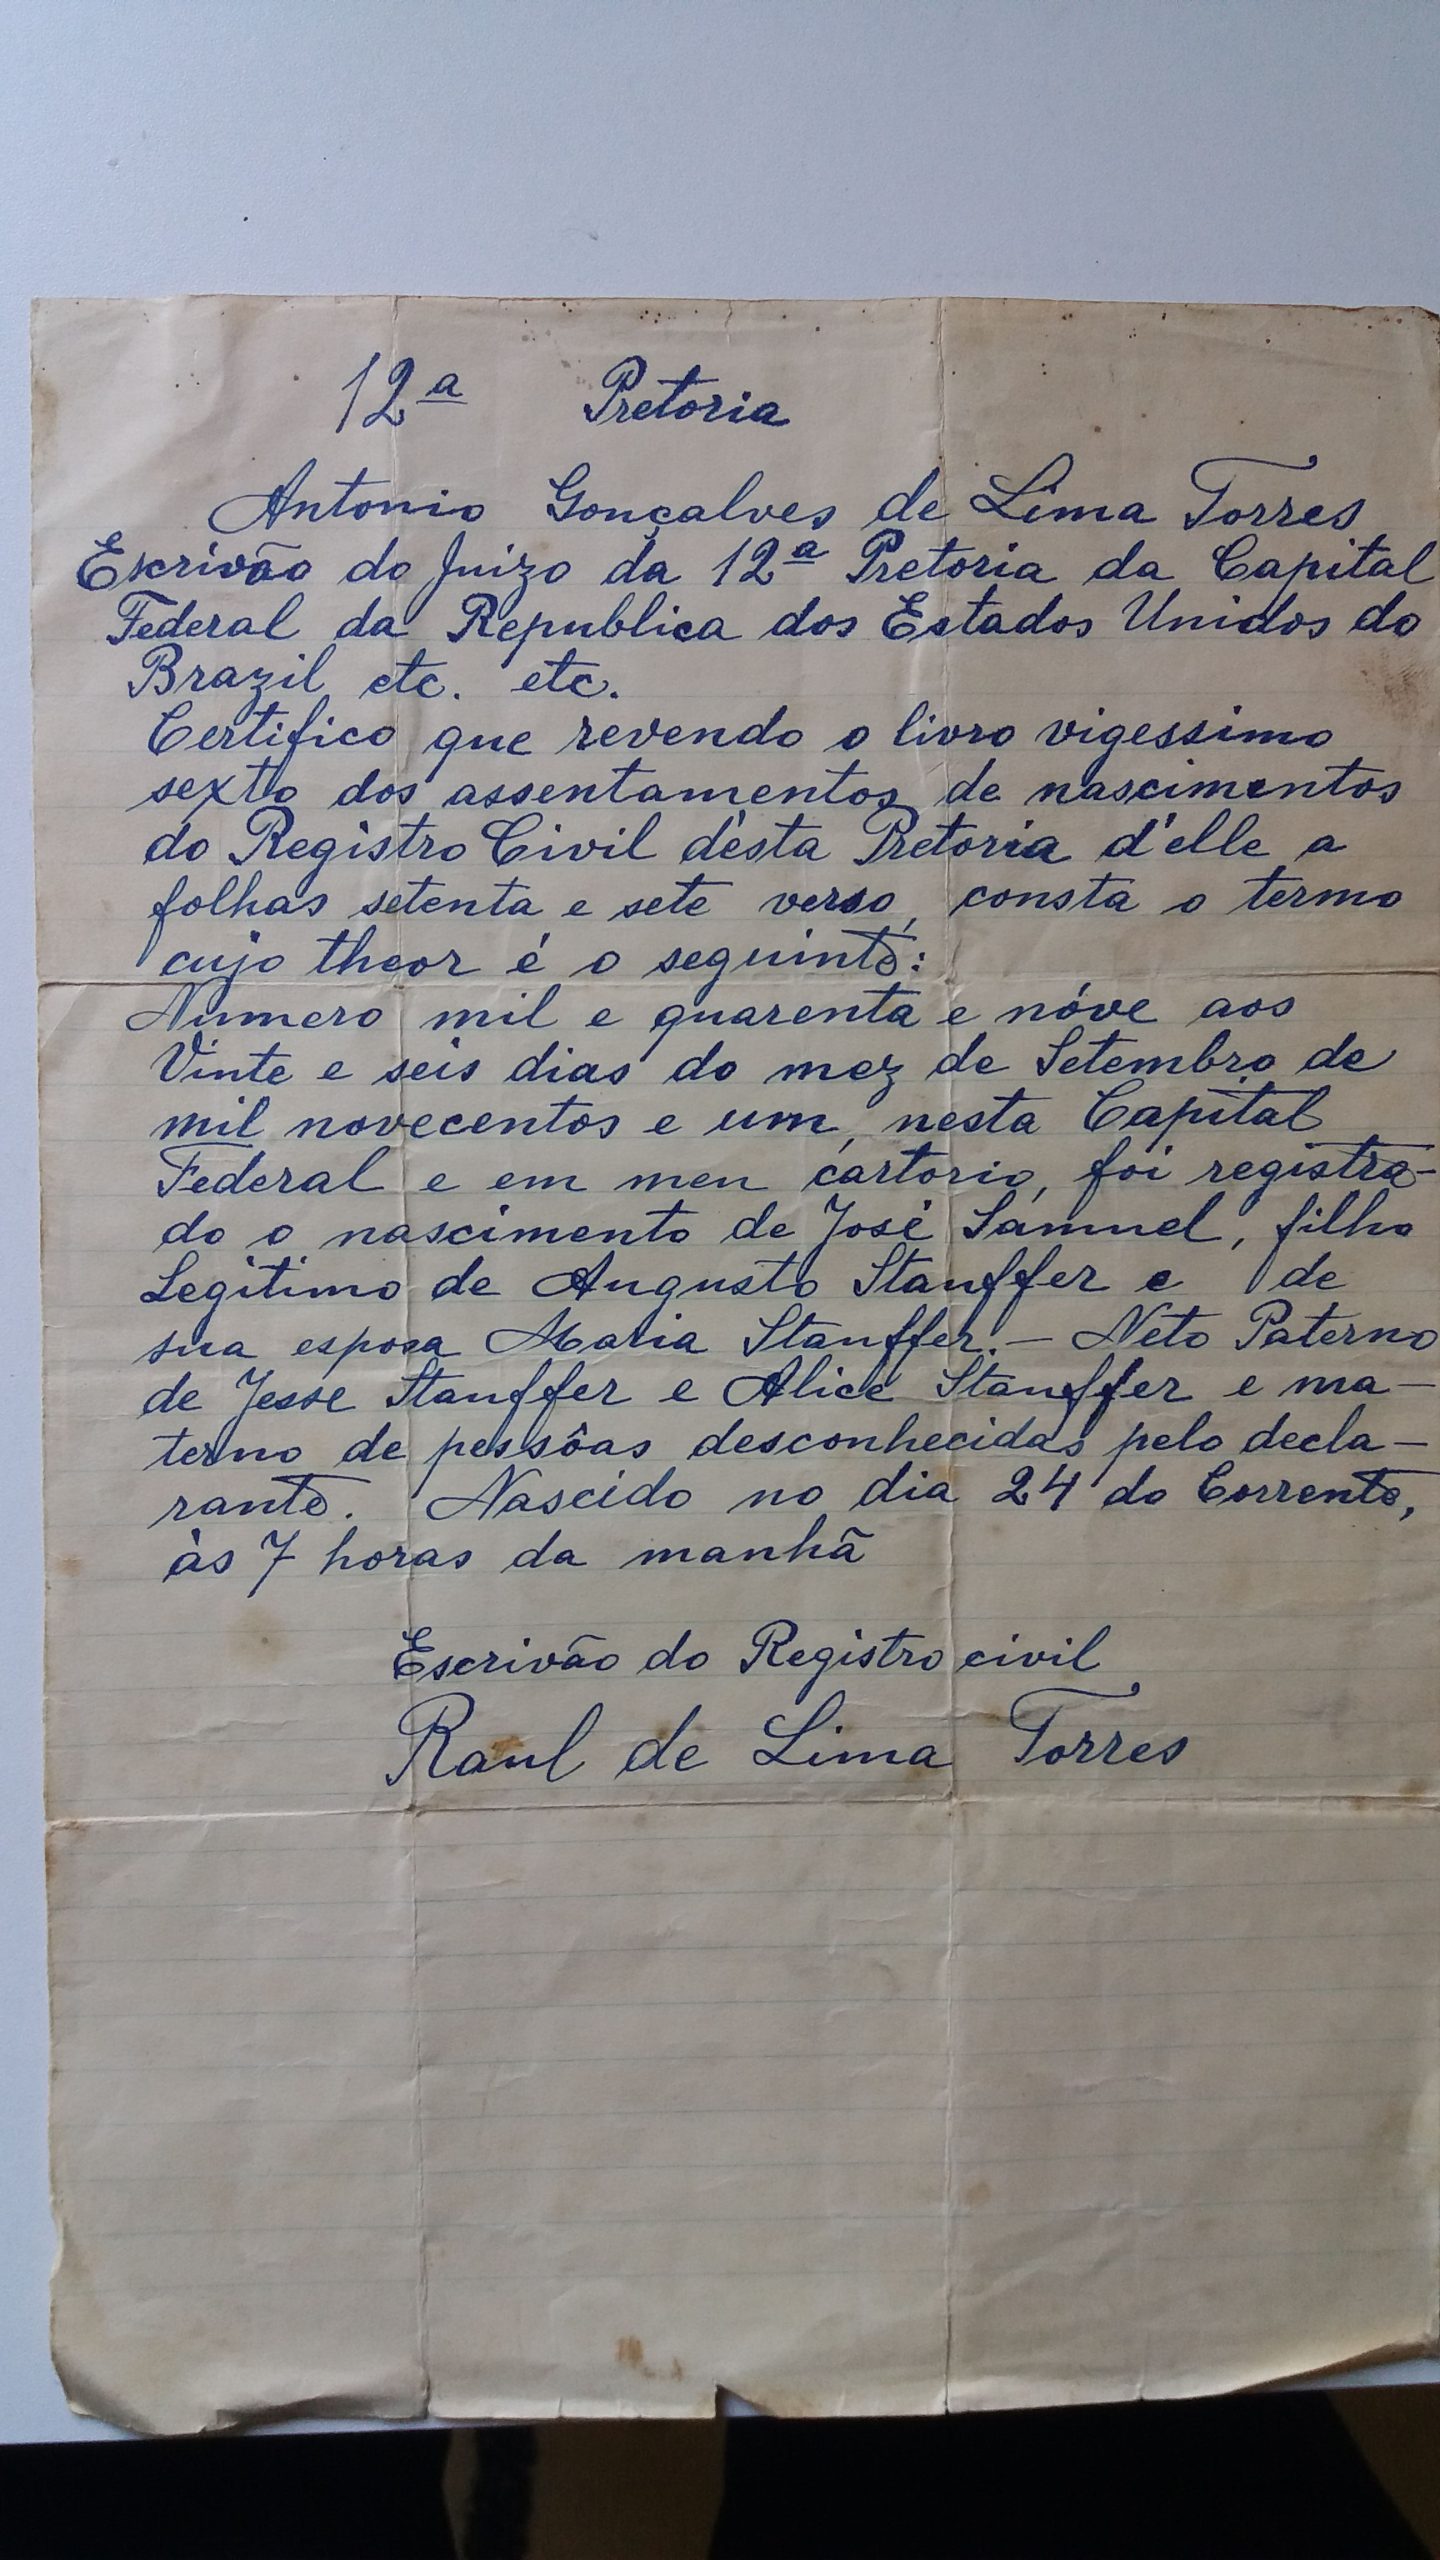 12ª Pretoria
Antonio Gonçalves de Lima Torres
Escrivão do Juizo da 12ª Pretoria da Capital
Federal da Republica dos Estados Unidos do
Brazil etc. etc.
Certifico que revendo o livro vigessimo
sexto dos assentamentos de nascimentos
do Registro Civil d'esta Pretoria d'elle a
folhas setenta e sete verso, consta o termo
cujo theor é o seguinte:
Numero mil e quarenta e nóve aos
Vinte e seis dias do mez de Setembro de
mil novecentos e um, nesta Capital
Federal e em meu cartorio, foi registra-
do o nascimento de José Samuel, filho
Legitimo de Augusto Stauffer e de
sua esposa Maria Stauffer. — Neto Paterno
de Jesse Stauffer e Alice Stauffer e ma-
terno de pessôas desconhecidas pelo decla-
rante. Nascido no dia 24 do Corrente,
às 7 horas da manhã
Escrivão do Registro civil
Raul de Lima Torres